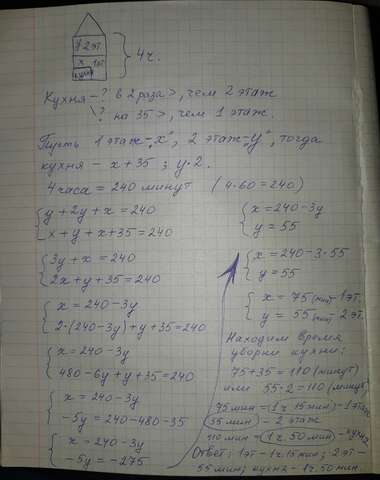 2 эт.
x 1эт.
кухня
4ч.
Кухня - ? в 2 раза >, чем 2 этаж
? на 35 >, чем 1 этаж.
Пусть 1 этаж - „x", 2 этаж - „y", тогда
кухня - x+35 ; y·2.
4 часа = 240 минут (4·60=240)
y+2y+x=240
x+y+x+35=240
3y+x=240
2x+y+35=240
x=240-3y
2·(240-3y)+y+35=240
x=240-3y
480-6y+y+35=240
x=240-3y
-5y=240-480-35
x=240-3y
-5y=-275
x=240-3y
y=55
x=240-3·55
y=55
x=75 (мин) 1эт.
y=55 (мин) 2эт.
Находим время
уборки кухни:
75+35=110 (минут)
или 55·2=110 (минут)
75 мин = 1ч 15 мин - 1 этаж
55 мин - 2 этаж
110 мин = 1ч. 50 мин - кухня
Ответ: 1эт - 1ч 15 мин; 2 эт -
55 мин; кухня - 1ч. 50 мин.